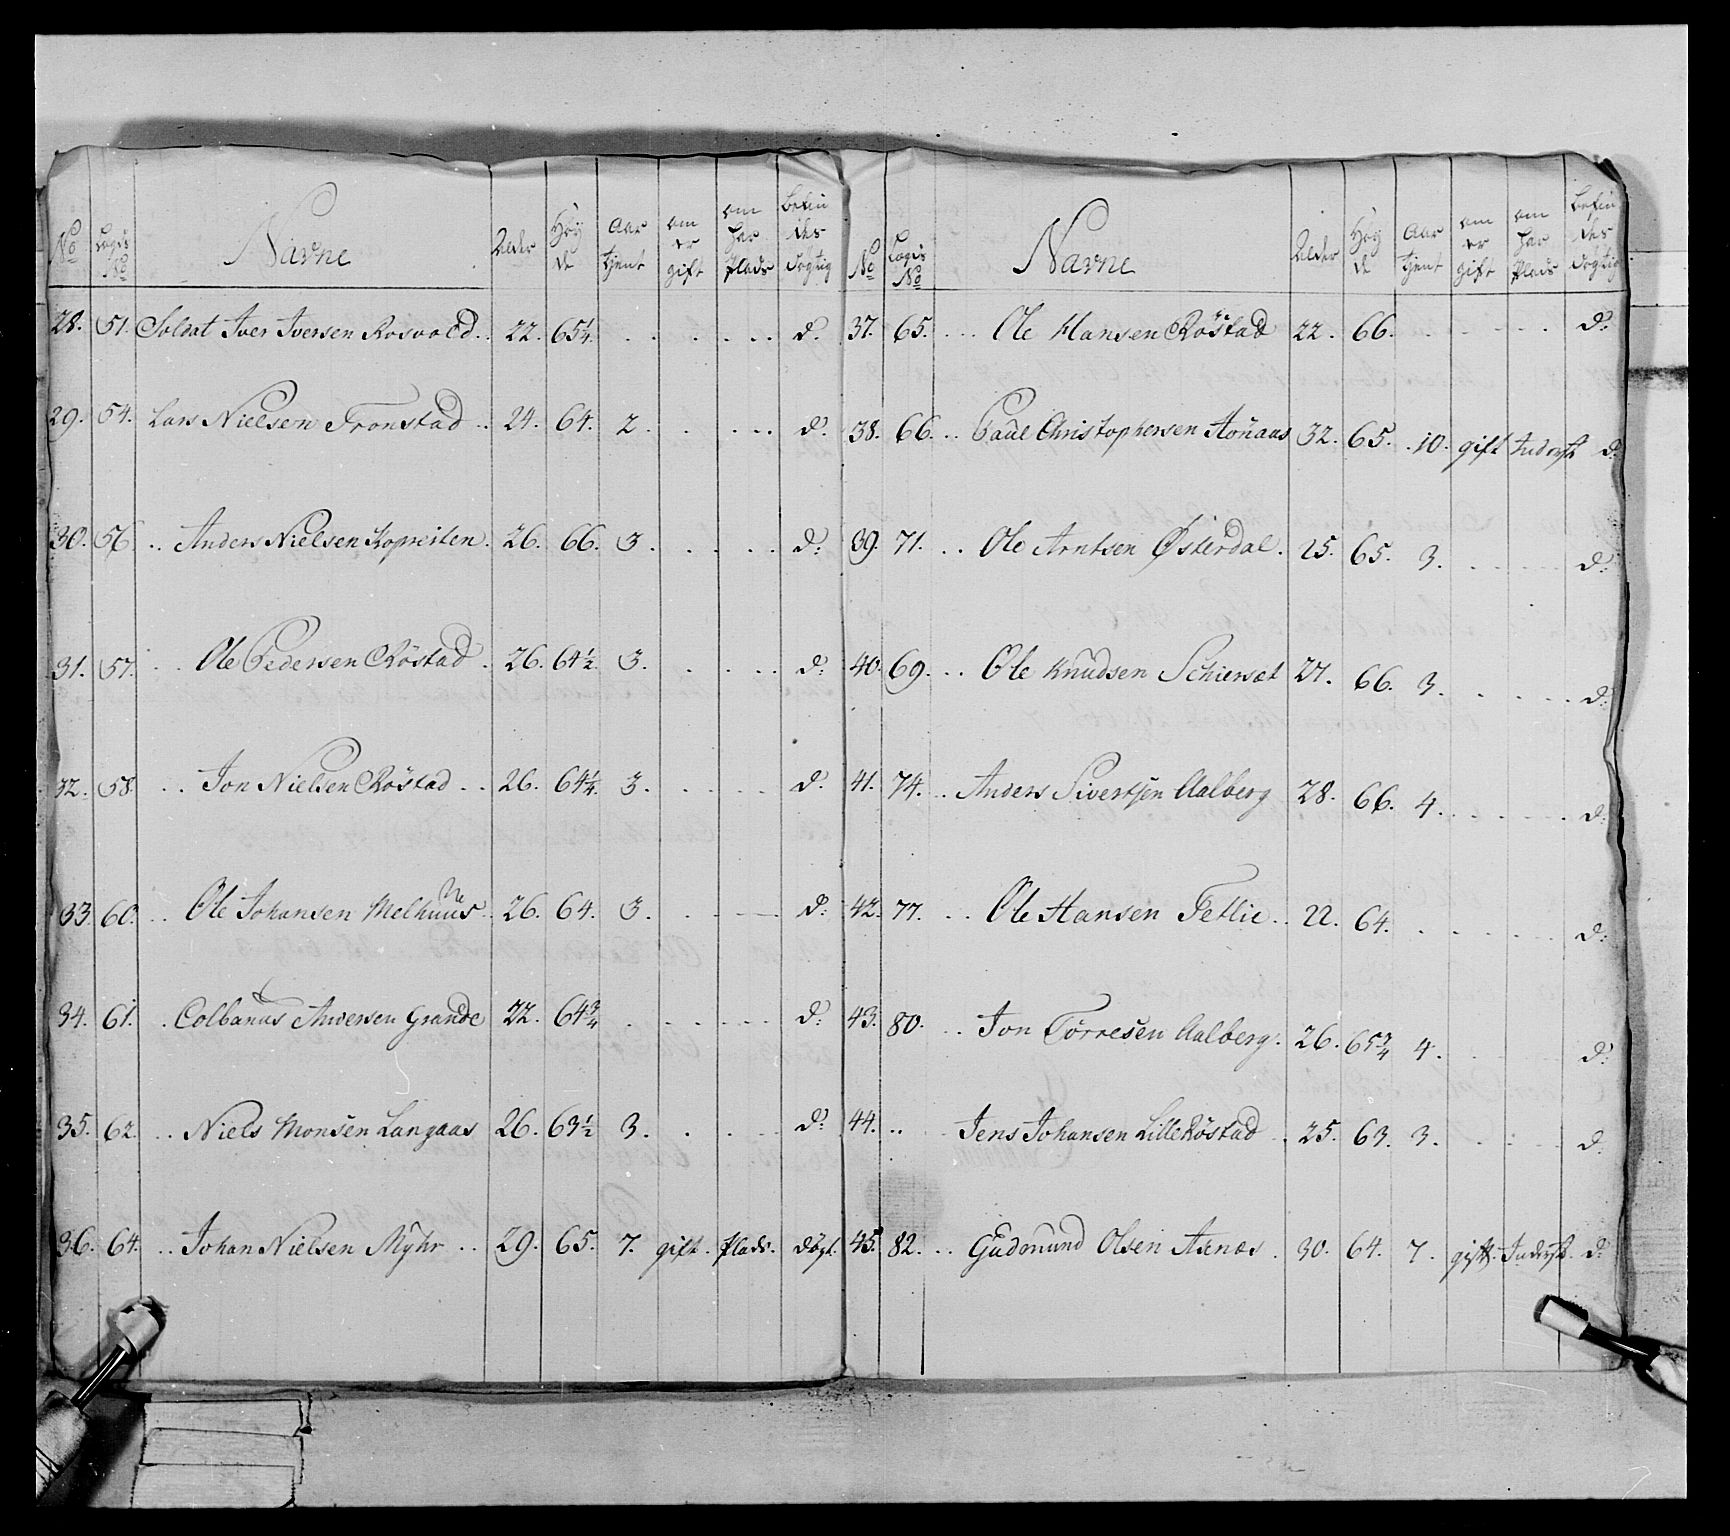 No Logis No Navne Alder Høyde Aar tjent om er gift om har Plads befindes dygtig
28. 51. Soldat Iver Iversen Rosvold . . 22. 65¼. . . . . . . d:
29. 54. Lars Nielsen Tronstad . . 24. 64. 2. . . . . d:
30. 56 . . Anders Nielsen Kopreiten. 26. 66. 3. . . . . d:
31. 57. . . Ole Pedersen Röstad . 26. 64½ 3. . . . . d:
32. 58. . . Jon Nielsen Röstad . . 26. 64¼. 3. . . . . d:
33. 60. . . Ole Johansen Melhuus . 26. 64. 3. . . . d:
34. 61. . Colbanus Andersen Grande 22. 64¾ . . . . . d:
35. 62. . . Niels Monsen Langaas 26. 63½ 3. . . . d:
36. 64. . . Johan Nielsen Myhr . . 29. 65. 7. gift. Plads. dögt.
No Logis No Navne Alder Høyde Aar tjent om er gift om har Plads befindes dygtig
37. 65. . . . Ole Hansen Röstad 22. 66. . . . . d:
38. 66. . . Paul Christophersen 32. 65. . 10. gift Inderst d:
39. 71. . . Ole Arntsen Østerdal. 25. 65. 3. . . . . d:
40. 69. . . Ole Knudsen Schiersæt 27. 66. 3. . . . . d:
41. 74. . . Anders Sivertsen Aalberg 28. 66. 4. . . . . d:
42. 77. . . Ole Hansen Fetlie . . 22. 64. . . . . d:
43. 80. . . Jon Torresen Aalberg. 26. 65¾ 4. . . d:
44. . . Jens Johansen Lille Röstad . 25. 63. 3. . . . d:
45. 82. . . Gudmund Olsen Aanes . 30. 64. 7. gift. Inderst. d: